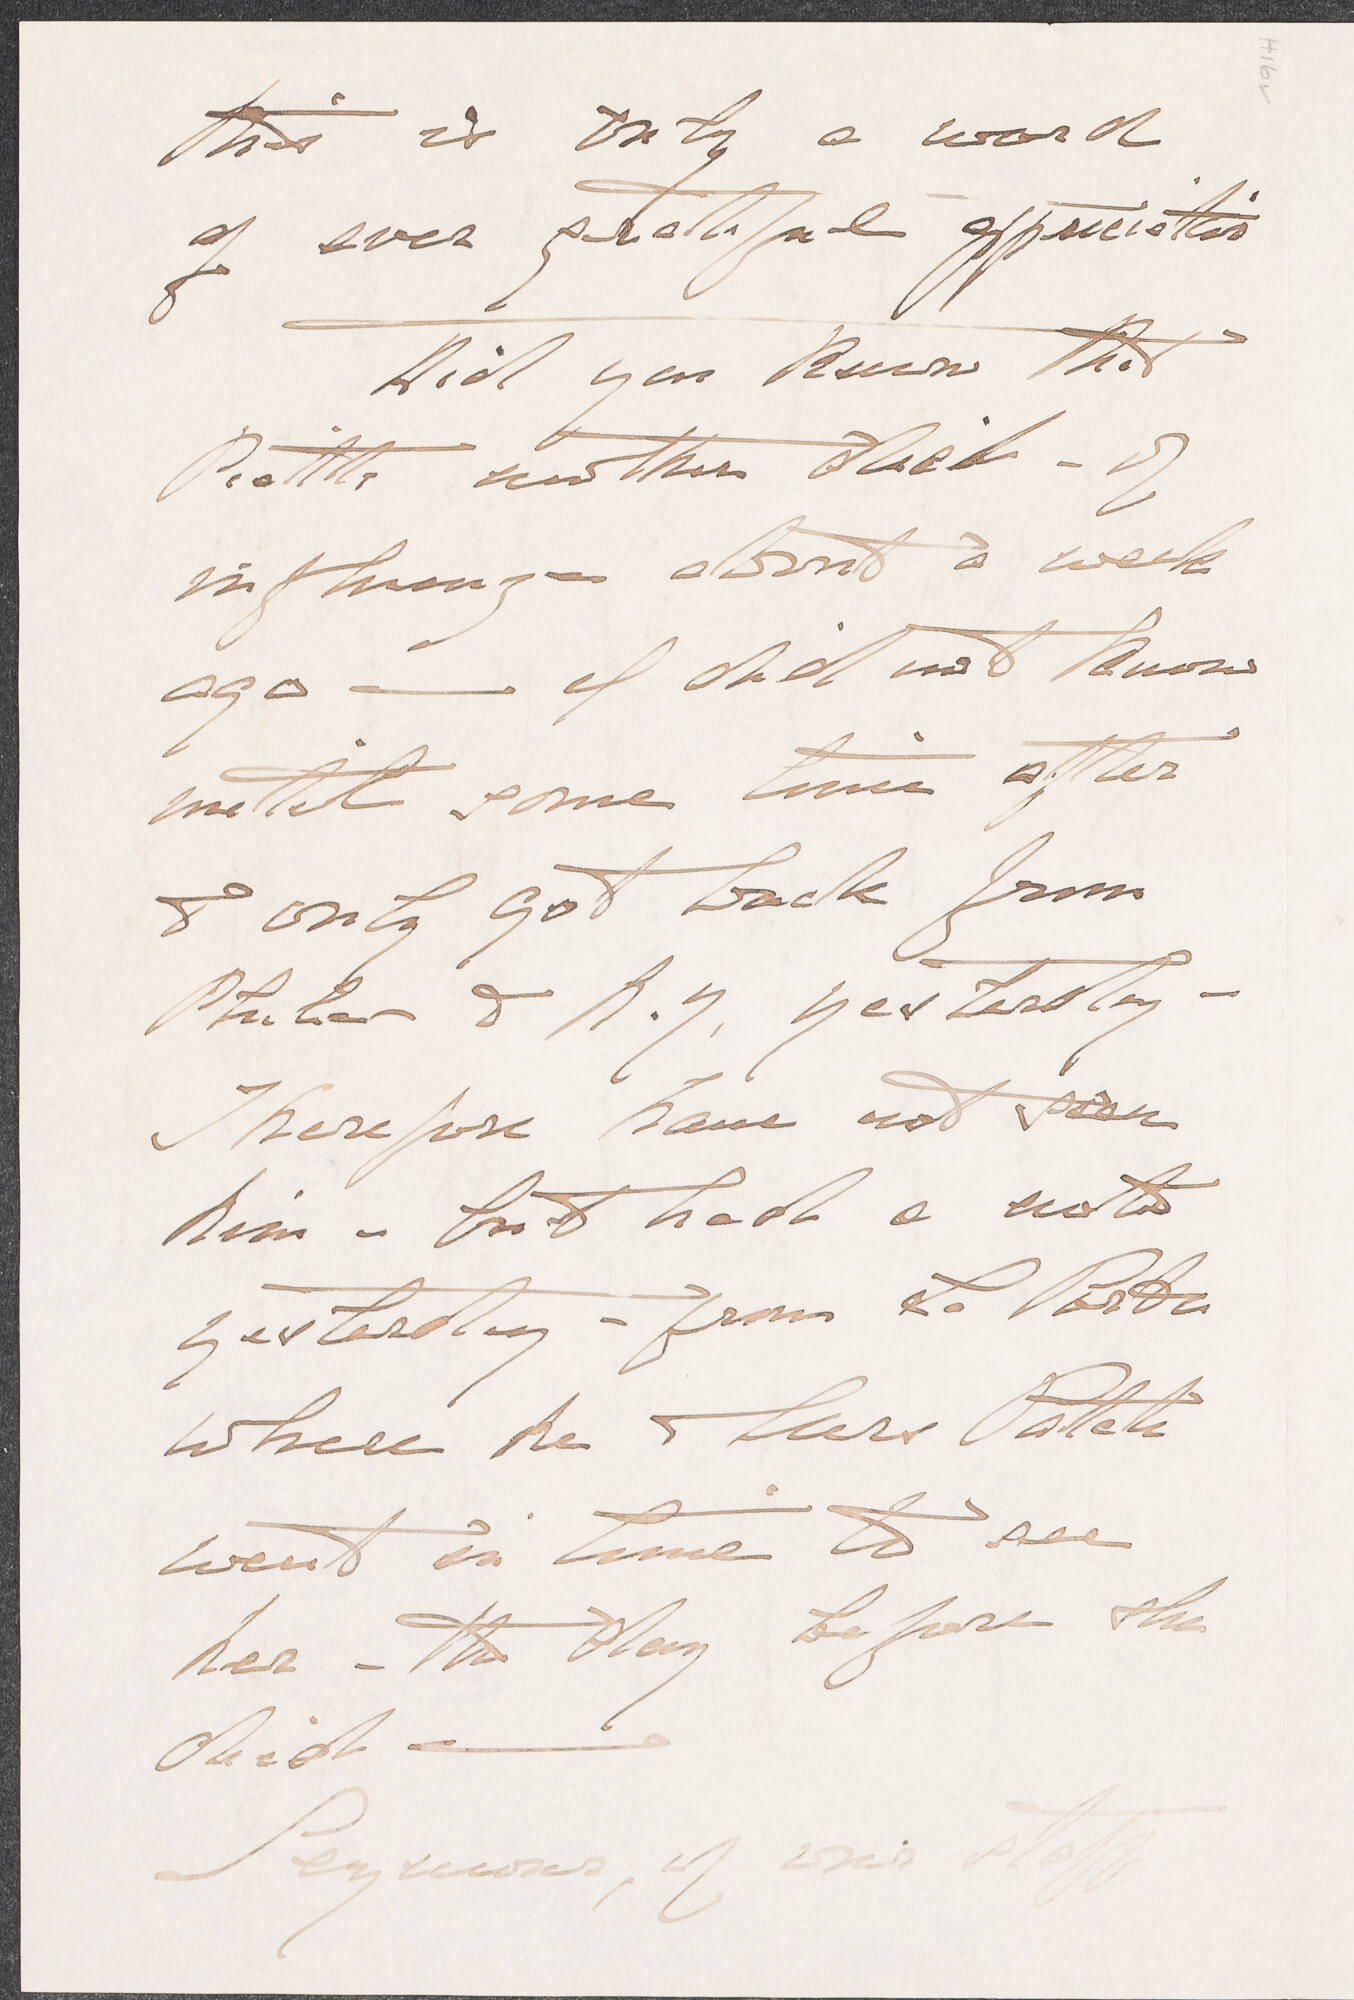 this is only a word
of ever grateful appreciation
Did you know that
Piatt's mother died - of
influenza about a week
ago — I did not know
until some time after
& only got back from
Phila & N.Y. yesterday -
Therefore have not seen
him - but had a note
yesterday - from La Porte
where he & Mrs Piatt
went in time to see
her - the day before she
died —
Seymour, of our staff
H16v